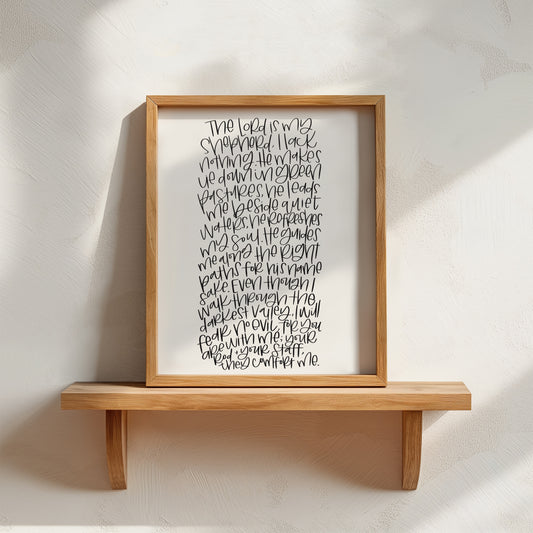 The Lord is my
Shepherd. I lack
nothing. He makes
lie down in green
pastures. he leads
me beside quiet
waters. he refreshes
my soul. He guides
me along the right
paths for his name
sake. Even though I
walk through the
darkest valley, I will
fear no evil, for you
are with me; your
Rod & your staff,
they comfort me.